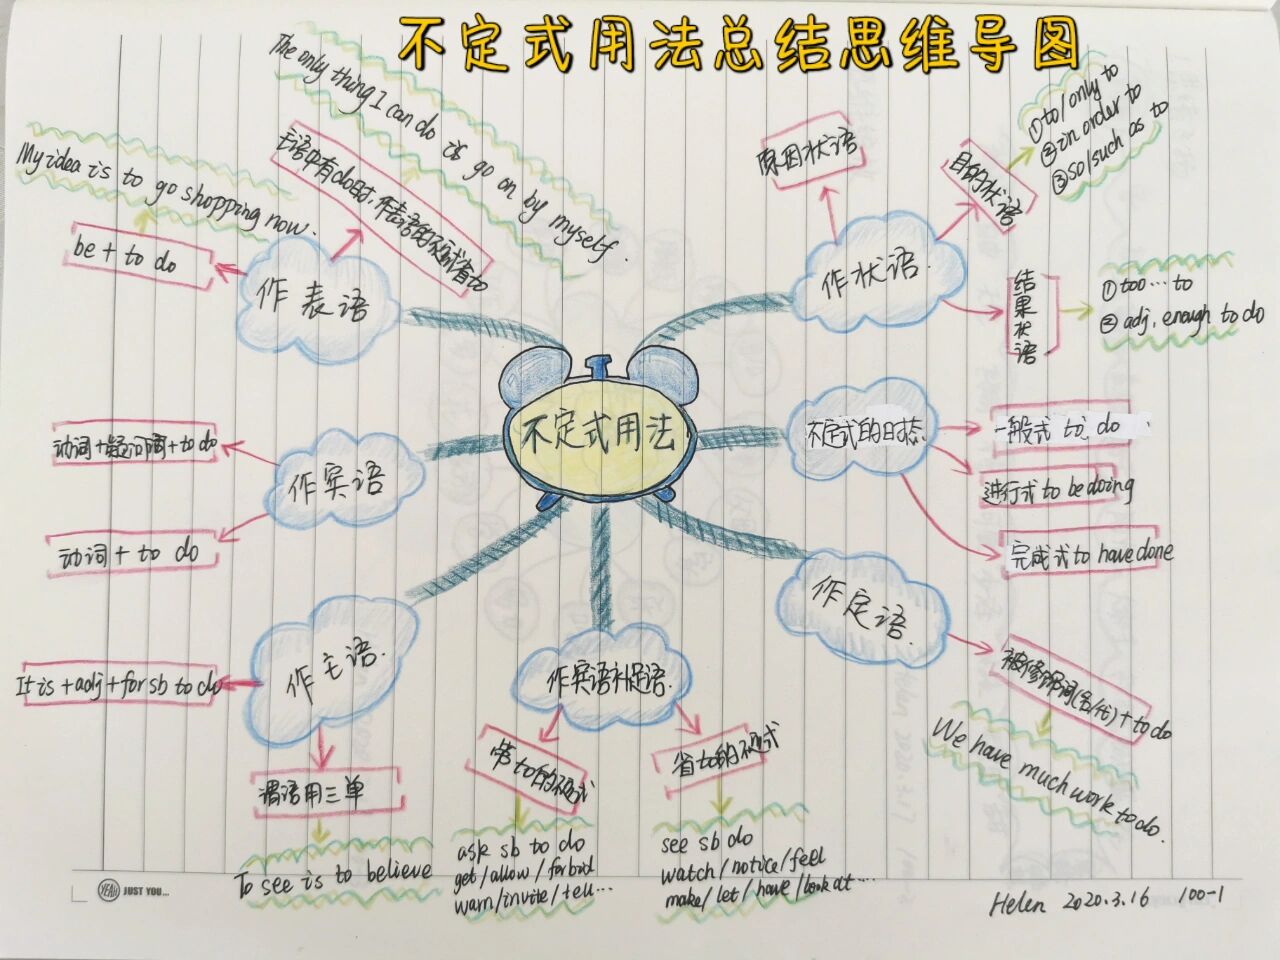 不定式用法总结思维导图
The only thing I can do is go on by myself.
主语中有do时,作表语的不定式省to
My idea is to go shopping now.
be + to do
作表语
原因状语
目的状语
①to/only to
②in order to
③so/such as to
作状语.
结果状语
①too…to
②adj. enough to do
不定式用法
不定式的时态
一般式 to do
进行式 to be doing
完成式 to have done
动词+疑问词+to do
作宾语
动词 + to do
作定语.
被修饰词(名/代)+to do
We have much work to do.
作主语.
It is +adj+for sb to do
谓语用三单
To see is to believe
作宾语补足语.
带to的不定式
ask sb to do
get/allow/forbid
warn/invite/tell…
省to的不定式
see sb do
watch/notice/feel
make/let/have/look at…
YEAH JUST YOU...
Helen 2020.3.16 100-1